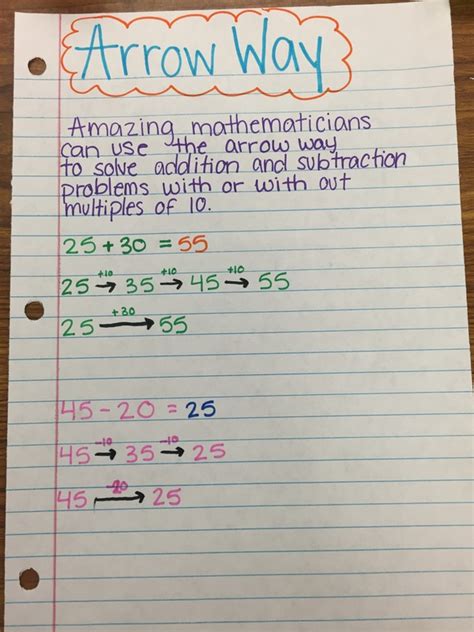 Arrow Way
Amazing mathematicians
can use the arrow way
to solve addition and subtraction
problems with or with out
multiples of 10.
25 + 30 = 55
25 +10→ 35 +10→ 45 +10→ 55
25 +30→ 55
45 - 20 = 25
45 -10→ 35 -10→ 25
45 -20→ 25